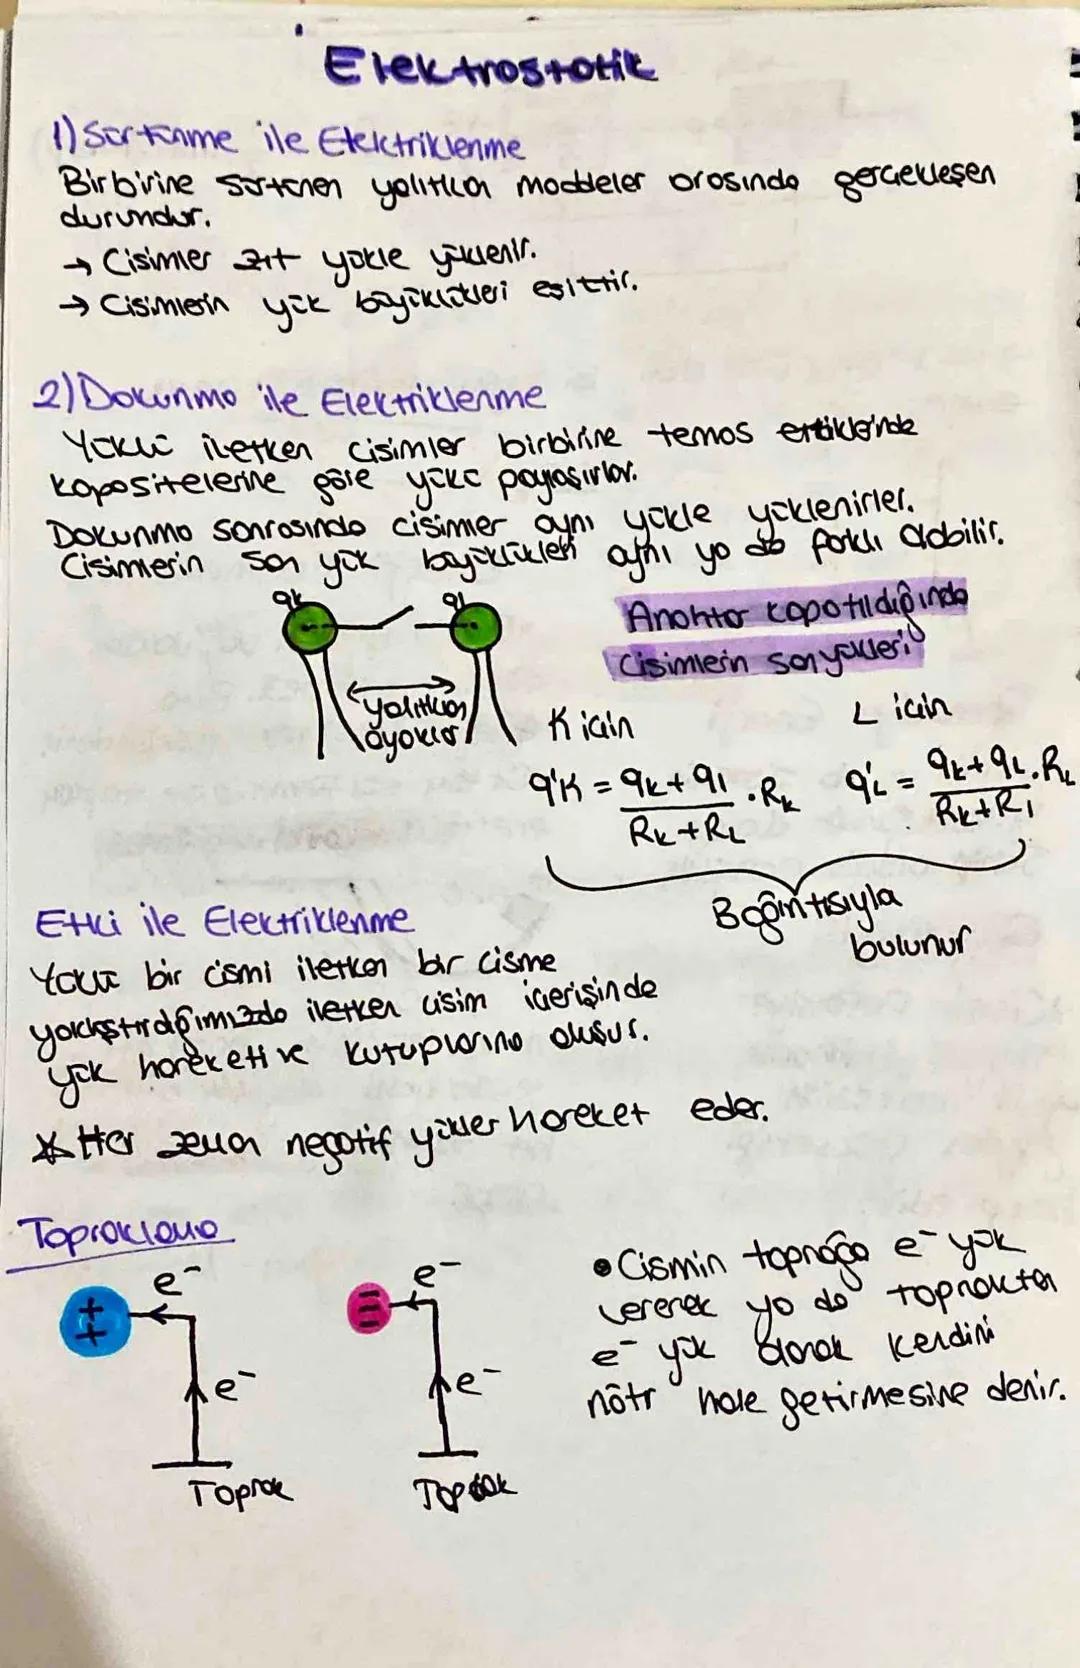 Elektrostatik
1) Sürtünme ile Elektriklenme
Birbirine sürtünen yalıtkan maddeler arasında gerçekleşen
durumdur.
→ Cisimler zıt yükle yüklenir.
→ Cisimlerin yük büyüklükleri eşittir.
2) Dokunma ile Elektriklenme
Yüklü iletken cisimler birbirine temas ettiklerinde
kapasitelerine göre yükü paylaşırlar.
Dokunma sonrasında cisimler aynı yükle yüklenirler.
Cisimlerin son yük büyüklükleri aynı ya da farklı olabilir.
qk qL
Anahtar kapatıldığında
cisimlerin son yükleri
yalıtkan
ayaklar
K için L için
q'K = qk+qL / Rk+RL . Rk q'L = qk+qL / Rk+RL . RL
Bağıntısıyla
bulunur
Etki ile Elektriklenme
Yüklü bir cismi iletken bir cisme
yaklaştırdığımızda iletken cisim içerisinde
yük hareketi ve kutuplanma oluşur.
* Her zaman negatif yükler hareket eder.
Topraklama
e⁻ e⁻
++ ---
e⁻ e⁻
Toprak Toprak
• Cismin toprağa e⁻ yük
vererek ya da topraktan
e⁻ yük alarak kendini
nötr hale getirmesine denir.